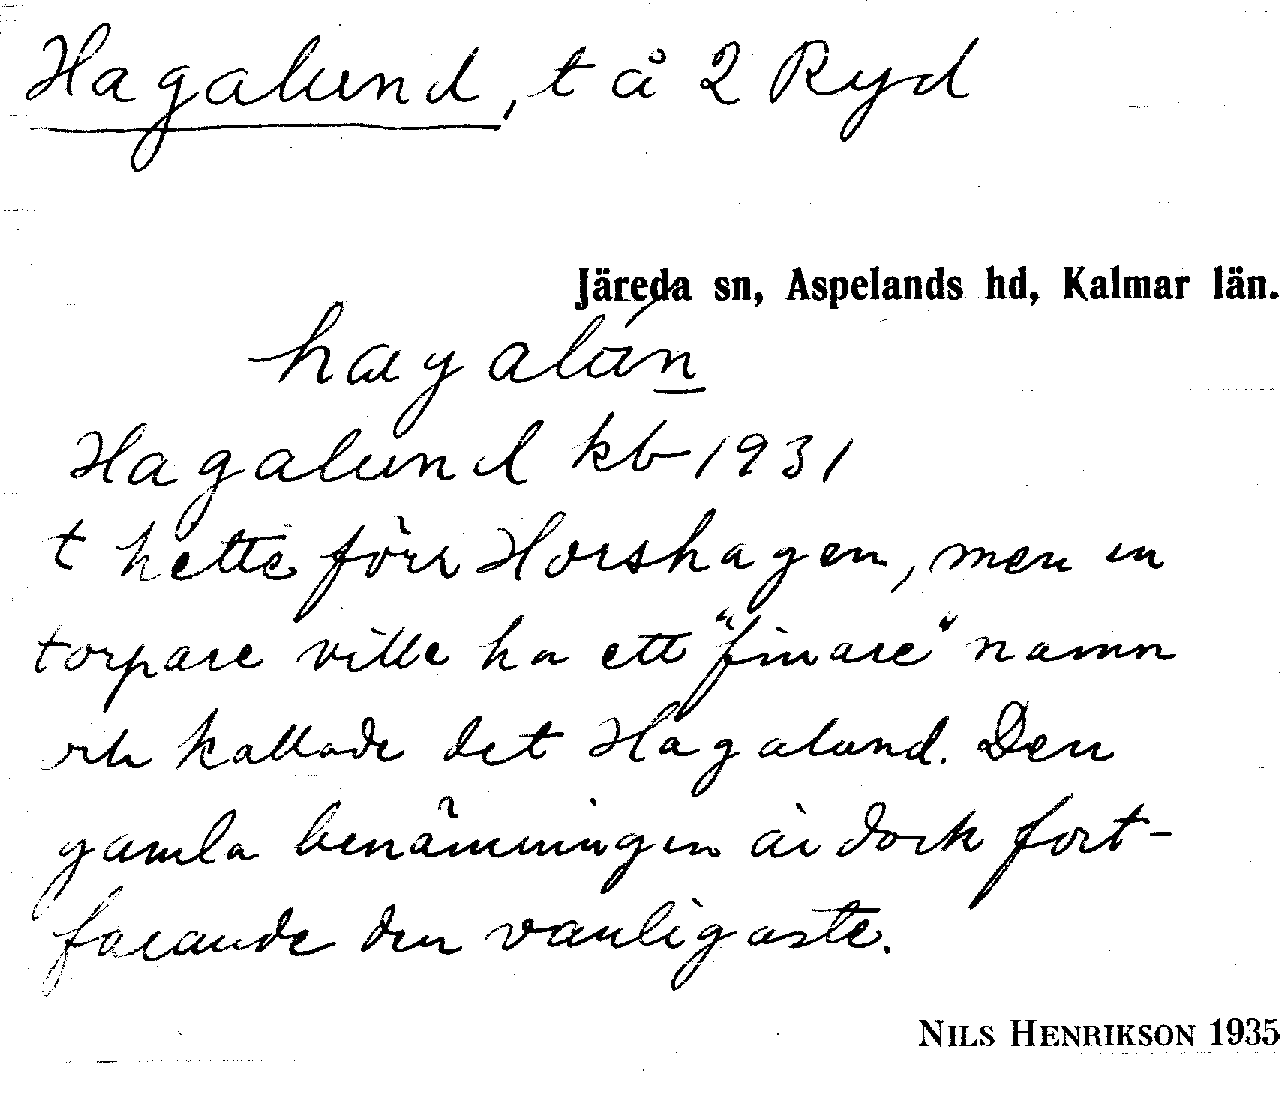 Hagalund, t å 2 Ryd
Järeda sn, Aspelands hd, Kalmar län.
hagalún
Hagalund kb 1931
t hette förr Horshagen, men en
torpare ville ha ett "finare" namn
och kallade det Hagalund. Den
gamla benämningen är dock fort-
farande den vanligaste.
NILS HENRIKSON 1935